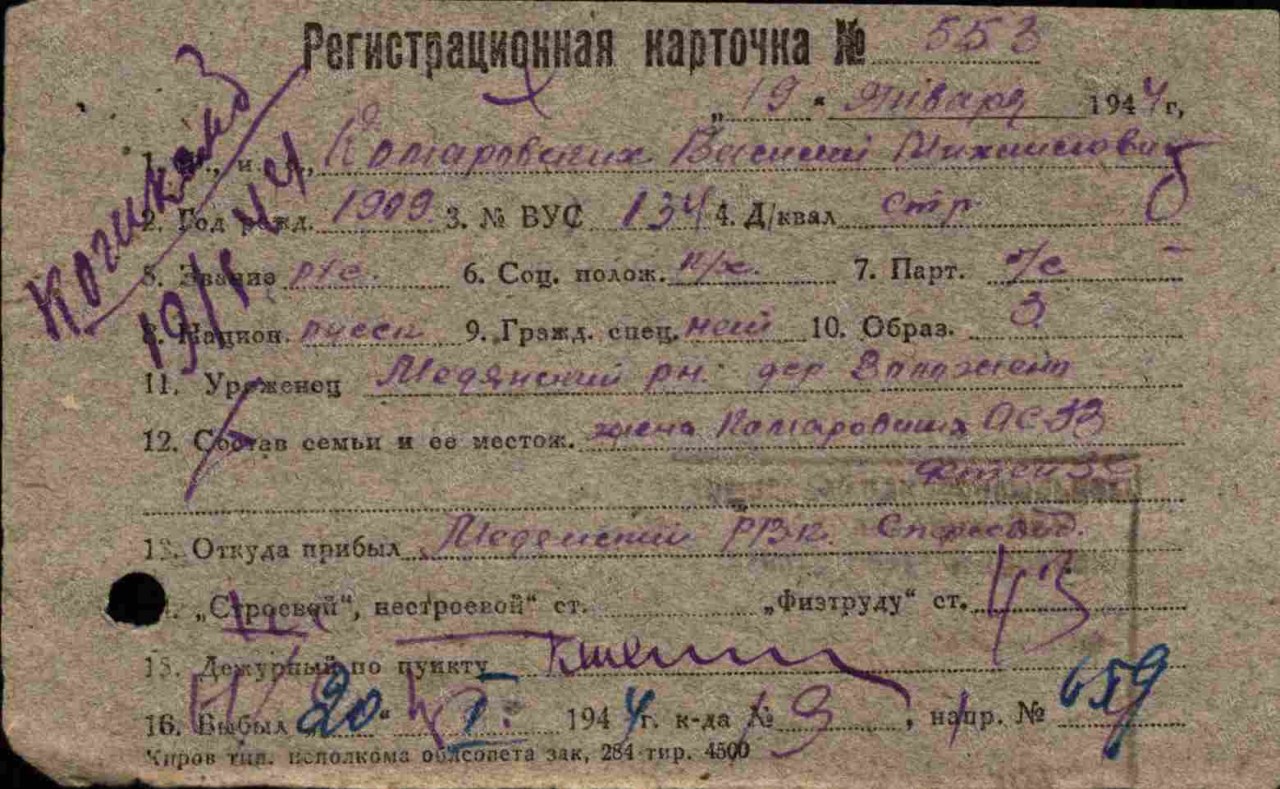 Регистрационная карточка № 553
„19“ января 1944 г,
1. ф., и, о., Комаровских Василий Михайлович
2. Год рожд. 1909 3. № ВУС 134 4. Д/квал стр
5. Звание р/с. 6. Соц. полож. к/х. 7. Парт. б/п
8. Национ. русск 9. Гражд. спец. 10. Образ. 3
11. Уроженец Медянский рн. дер
12. Состав семьи и ее местож. жена Комаровских
детей 3
13. Откуда прибыл Медянский РВК.
14. „Строевой“, нестроевой“ ст. „Физтруду“ ст. 43
15. Дежурный по пункту
16. Выбыл „20“ I. 1944 г. к-да № 9, напр. № 659
Киров тип. исполкома облсовета зак, 284 тир. 4500
19/I 44